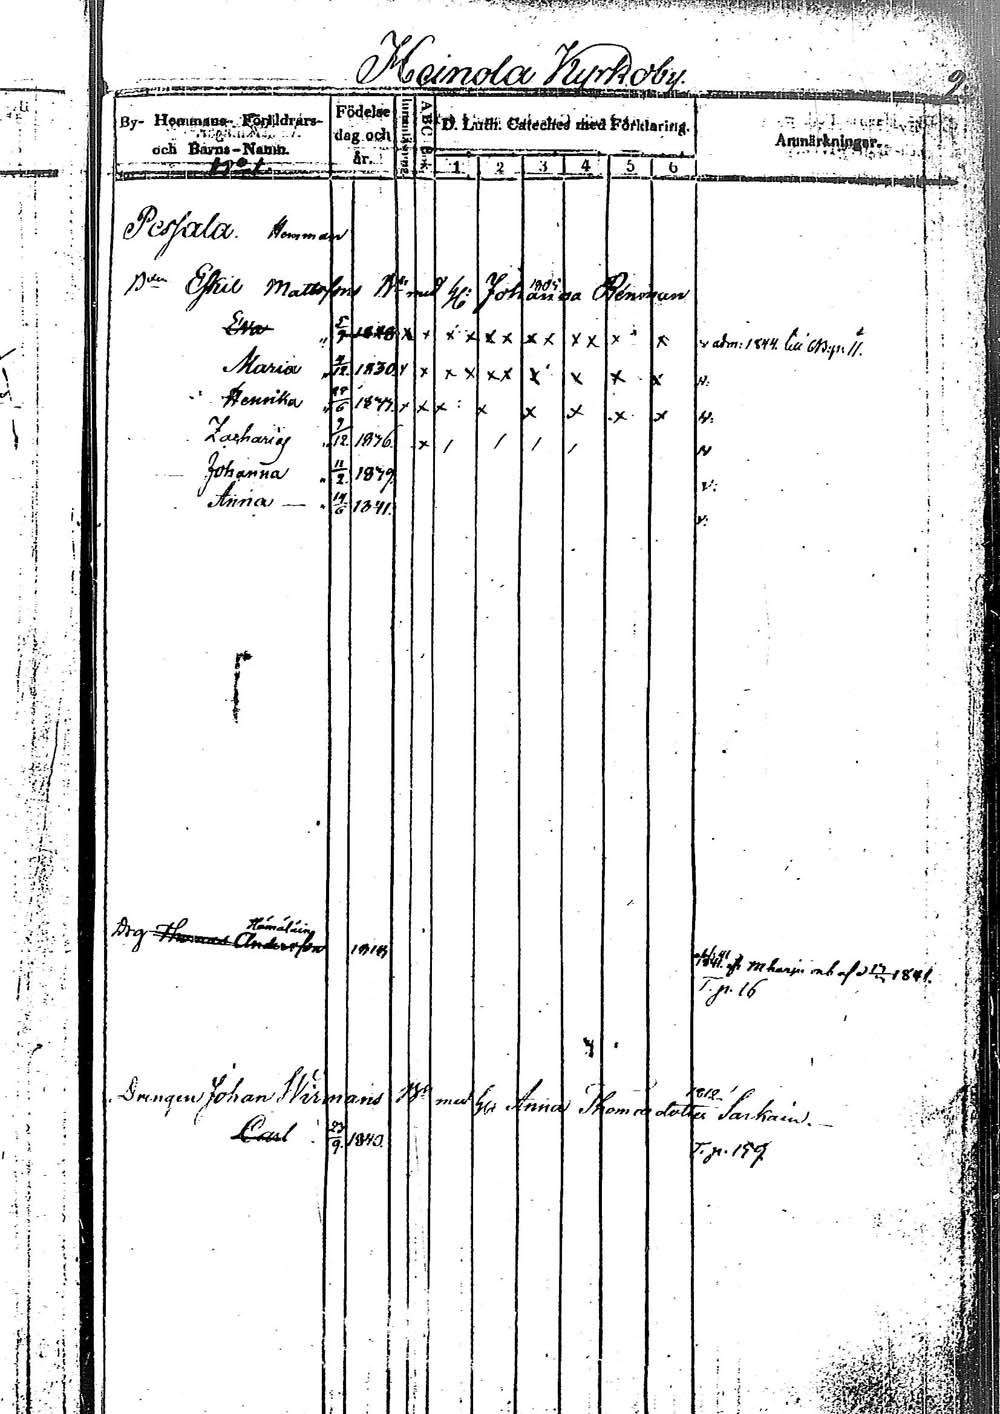 Heinola Kyrkoby.
9
By- Hemmans- Föräldrars- och Barns-Namn.
Nº 1.
Födelse dag och år.
ABC Bok
D. Luth. Cateches med Förklaring.
1 2 3 4 5 6
Anmärkningar.
Pessala. Hemman
Bdn Eskil Mattssons Bn med H: Johanna Renman
1805
Eva 1828 x x x x x x x x x x x x adm: 1844.
Maria " 4/12 1830 x x x x x x x x x x
Henrika 1833 x x x x x x x x
Zacharias 9/12 1836 x / / / /
Johanna " 11/2 1839
Anna — " 14/6 1841.
Hämäläin
Drg Thomas Andersson 1818
1841.
T. p. 16
Drengen Johan Wirmans Bn med H: Anna Thomasdotter Sarkain.
1812
Carl 23/9 1840.
T. p. 159